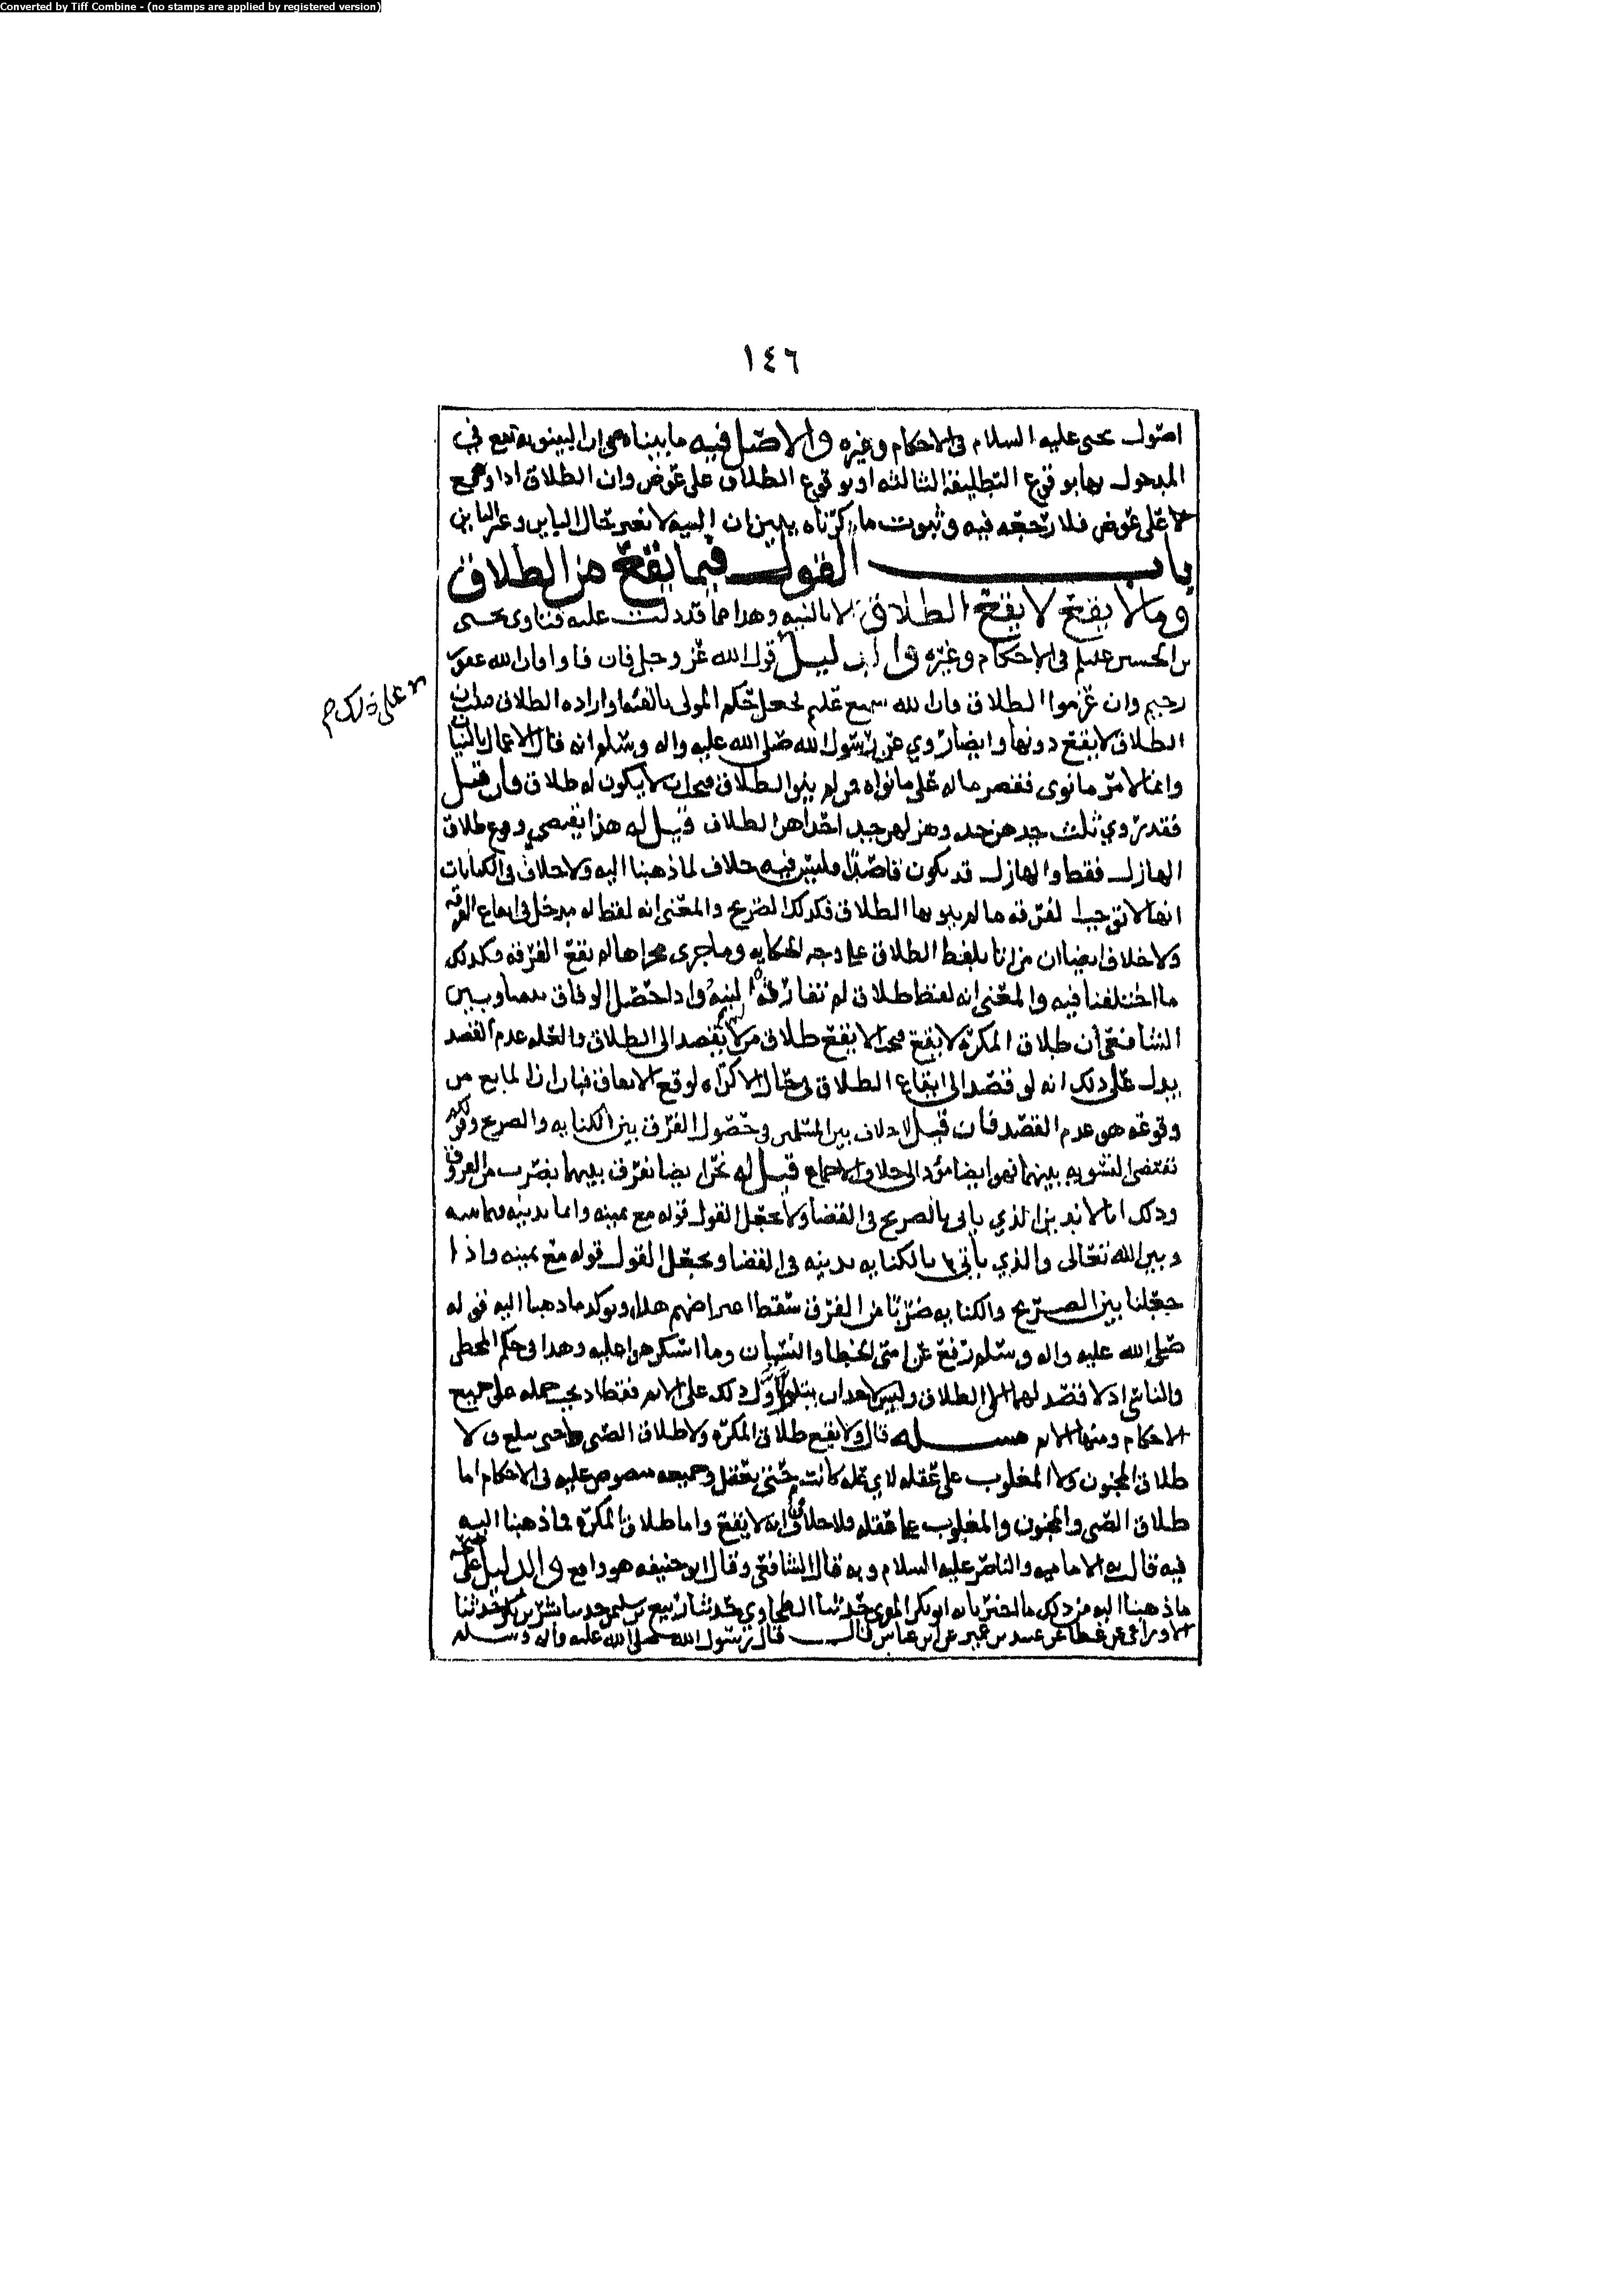 Converted by Tiff Combine - (no stamps are applied by registered version)
١٤٦
اصول يحيى عليه السلام في الاحكام وغيره والاصل فيه ما بيناه من ان البينونه تقع في
المدخول بها بوقوع التطليقة الثالثه او بوقوع الطلاق على عوض وان الطلاق اذا وقع
لا على عوض فلا رجعه فيه وثبوت ما ذكرناه يبين ان النيه لا تغير حال الباين وغير الباين
باب القول فيما يقع من الطلاق
وما لا يقع لا يقع الطلاق الا بالنيه وهذا مما قد دلت عليه فتاوى يحيى
بن الحسين عليلم في الاحكام وغيره والدليل قول الله عز وجل فان فاوا فان الله غفور
رحيم وان عزموا الطلاق فان الله سميع عليم فجعل حكم المولى بالفئه او اراده الطلاق
على ذلك م
الطلاق لا يقع دونها وايضا روي عن رسول الله صلى الله عليه واله وسلم انه قال الاعمال بالنيات
وانما لامرء ما نوى فقصر ماله على ما نواه من لم ينو الطلاق يجب ان لا يكون له طلاق فان قيل
فقد روي ثلث جدهن جد وهزلهن جد احداهن الطلاق قيل له هذا يقتضي وقوع طلاق
الهازل فقط والهازل قد يكون قاصدا فليس فيه خلاف لما ذهبنا اليه ولا خلاف في الكنايات
انها لا توجب الفرقه ما لم ينو بها الطلاق فكذلك الصريح والمعنى انه لفظ له مدخل في ايقاع الفرقه
ولا خلاف ايضا ان من اتا بلفظ الطلاق على وجه الحكايه وما جرى مجراها لم تقع الفرقه فكذلك
ما اختلفنا فيه والمعنى انه لفظ طلاق لم تقارنه النيه واذا حصل الوفاق بيننا وبين
الشافعي أن طلاق المكره لا يقع فيجب الا يقع طلاق من لم يقصد الى الطلاق والعله عدم القصد
يدل على ذلك انه لو قصد الى ايقاع الطلاق في حال الاكراه لوقع الاتفاق فبان ان المانع من
وقوعه هو عدم القصد فان قيل لا خلاف بين المسلمين في حصول الفرق بين الكنايه والصريح وقولكم
يقتضي التسويه بينهما فهو ايضا مؤد الى خلاف الاجماع قيل له نحن ايضا نفرق بينهما بضرب من الفروق
وذلك انا لا ندين الذي ياتي بالصريح في القضا ولا نجعل القول قوله مع يمينه وانما ندينه فيما بينه
وبين الله تعالى والذي يأتي بالكنايه ندينه في القضا ونجعل القول قوله مع يمينه واذا
جعلنا بين الصريح والكنايه ضربًا من الفرق سقط اعتراضهم هذا ويوكد ما ذهبنا اليه قوله
صلى الله عليه واله وسلم رفع عن امتي الخطا والنسيان وما استكرهوا عليه وهذا في حكم المخطي
والناسي اذ لا قصد لهما الى الطلاق وليس لاحد ان يتاول ذلك على الاثم فقط اذ يجب حمله على جميع
الاحكام ومنها الاثم مسله قال ولا يقع طلاق المكره ولا طلاق الصبي حتى يبلغ ولا
طلاق المجنون ولا المغلوب على عقله لاي عله كانت حتى يعقل وجميعه منصوص عليه في الاحكام اما
طلاق الصبي والمجنون والمغلوب على عقله فلا خلاف انه لا يقع واما طلاق المكره فما ذهبنا اليه
فيه قال به الاماميه والناصر عليه السلام وبه قال الشافعي وقال ابو حنيفه هو واقع والدليل على صحه
ما ذهبنا اليه من ذلك ما اخبرنا به ابو بكر المقري حدثنا الطحاوي حدثنا ربيع بن سليمن حدثنا بشر بن بكر حدثنا
الاوزاعي عن عطا عن عبيد بن عمير عن ابن عباس قال قال رسول الله صلى الله عليه واله وسلم